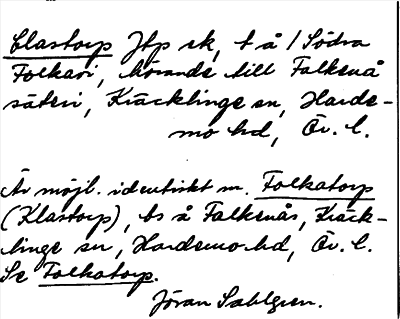 Clastorp Jtp rk, t å / Södra
Folkari, hörande till Falkenå
säteri, Kräcklinge sn, Hardemo-
mo hd, Ör. l.
Är möjl. identiskt m. Folkatorp
(Klastorp), ts å Falkenås, Kräck-
linge sn, Hardemo hd, Ör. l.
Se Folkatorp.
Jöran Sahlgren.